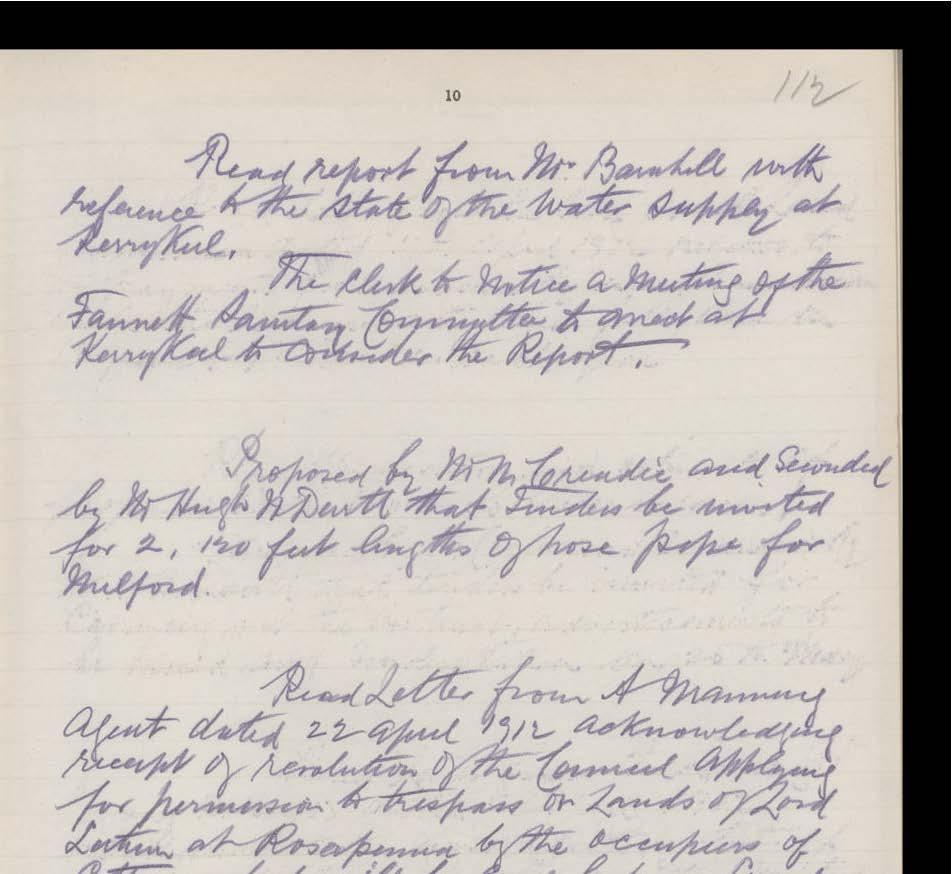 10
112
Read report from Mr. Barnhill with
reference to the state of the water supply at
Kerrykeel.
The Clerk to notice a meeting of the
Fannett Sanitary Committee to meet at
Kerrykeel to consider the Report.
Proposed by Mr McCreadie and Seconded
by Mr Hugh McDevitt that Tenders be invited
for 2, 120 feet lengths of hose pipe for
Milford.
Read Letter from A Manning
Agent dated 22 April 1912 acknowledging
receipt of resolution of the Council Applying
for permission to trespass on Lands of Lord
Leitrim at Rosapenna by the occupiers of